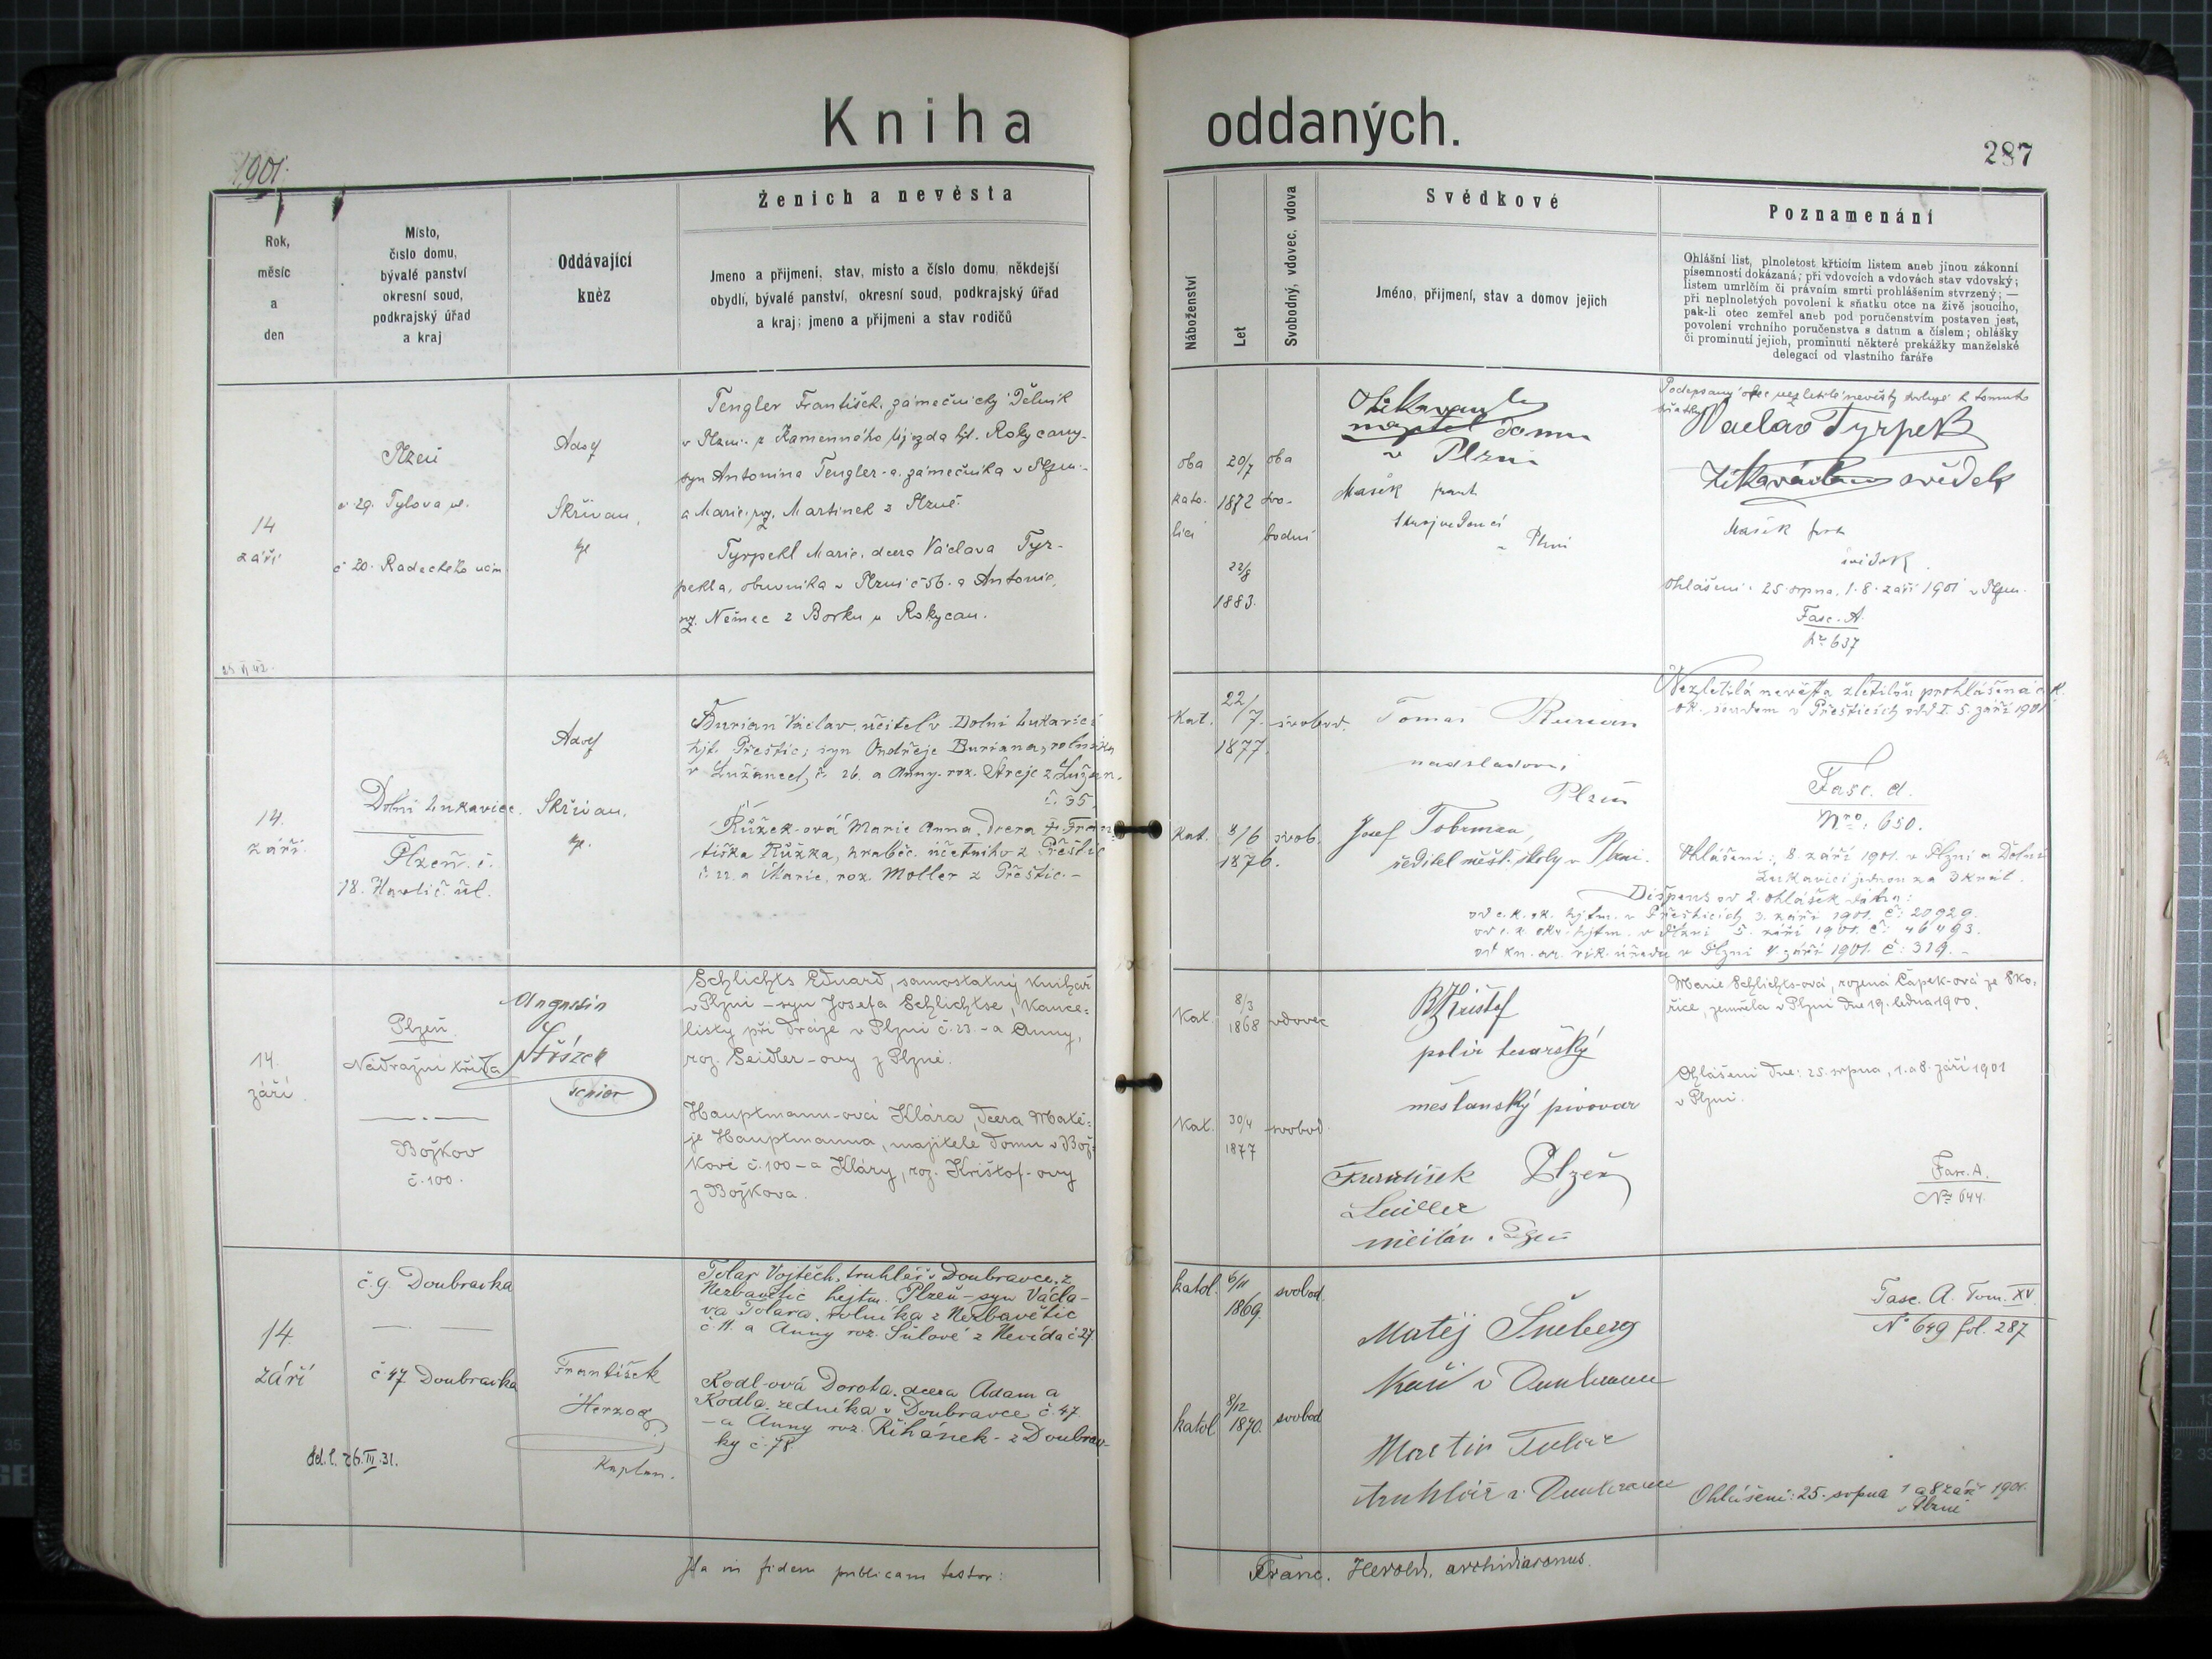 Kniha oddaných.
1901.
287
Rok,
měsíc
a
den
Místo,
číslo domu,
bývalé panství
okresní soud,
podkrajský úřad
a kraj
Oddávající
kněz
Ženich a nevěsta
Jmeno a příjmení, stav, místo a číslo domu, někdejší
obydlí, bývalé panství, okresní soud, podkrajský úřad
a kraj; jmeno a příjmení a stav rodičů
Náboženství
Let
Svobodný, vdovec, vdova
Svědkové
Jméno, příjmení, stav a domov jejich
Poznamenání
Ohlášní list, plnoletost křticím listem aneb jinou zákonní
písemností dokázaná; při vdovcích a vdovách stav vdovský;
listem umrlčím či právním smrti prohlášením stvrzený; —
při neplnoletých povolení k sňatku otce na živě jsoucího,
pak-li otec zemřel aneb pod poručenstvím postaven jest,
povolení vrchního poručenstva s datum a číslem; ohlášky
či prominutí jejich, prominutí některé prekážky manželské
delegací od vlastního faráře
14
září
Plzeň
č 29. Tylova ul.
č 20. Radeckého nám
Adolf
Skřivan,
kpl
Tengler František, zámečnický dělník
v Plzni z Kamenného Újezda hjt. Rokycany-
syn Antonína Tengler-a, zámečníka v Plzni-
a Marie, roz. Martinek z Plzně.
Tyrpekl Marie, dcera Václava Tyr-
pekla, obuvníka v Plzni č 56. a Antonie,
roz. Němec z Borku u Rokycan.
oba
kato-
líci
20/7
1872
22/8
1883.
oba
svo-
bodni
domu
v Plzni
Mašek frant
strojvedoucí
Podepsaný otec nezletilé nevěsty svoluje k tomuto
sňatku
Václav Tyrpekl
svědek
Mašek frant
svědek
Ohlášení: 25. srpna, 1. 8. září 1901 v Plzni.
Fasc. A.
No 637
14.
září.
Dolní Lukavice.
Plzeň. č.
18. Havlíč. ul.
Adolf
Skřivan,
kpl.
Burian Václav, učitel v Dolní Lukavici
hjt. Přeštic; syn Ondřeje Buriana, rolníka
v Lužanech, č. 26. a Anny. roz. Streje z Lužan.
č. 35.
Růžek-ová Marie Anna, dcera † Fran-
tiška Růžka, hraběc. účetního z Přeštic
č. 22. a Marie, roz. Moller z Přeštic.-
Kat.
22/7
1877.
svobod.
Kat.
8/6
1876.
svob.
Tomáš Burian
nadsladovní
Plzeň
Josef Tobrman,
ředitel měšt. školy v Plzni.
Nezletilá nevěsta zletilou prohlášena c. k.
ok. soudem v Přešticích odd I. 5. září 1901
Fasc. A.
Nro. 650.
Ohlášení: 8 září 1901. v Plzni a Dolní
Lukavici jednou za 3krát.
Dispens od 2. ohlášek dána:
od c. k. ok. hjtm. v Přešticích 3. září 1901. č: 20929.
od c. k. okr. hjtm. v Plzni 5. září 1901. č: 46493.
od kn. ar. vik. úřadu v Plzni 4. září 1901. č: 319.-
14.
září.
Plzeň
Nádražní třída
Božkov
č. 100.
Augustin
Střízek
senior
Schlichts Eduard, samostatný knihař
v Plzni - syn Josefa Schlichtse, kance-
listy při dráze v Plzni č. 23. - a Anny,
roz. Seidler-ovy z Plzně.
Hauptmann-ová Klára, dcera Matě-
je Hauptmanna, majitele domu v Bož-
kově č. 100 - a Kláry, roz. Krištof-ovy
z Božkova.
Kat.
8/3
1868
vdovec
Kat.
30/4
1877
svobod.
Krištof
polír tesařský
měšťanský pivovar
Plzeň
František
Plzeň
Marie Schlichts-ová, rozená Čapek-ová ze Sko-
řice, zemřela v Plzni dne 19. ledna 1900.
Ohlášení dne: 25. srpna, 1. a 8. září 1901
v Plzni.
Fasc. A.
No 644.
14.
září
č. 9 Doubravka
č 47 Doubravka
František
Herzog
Kaplan.
Tolar Vojtěch, truhlář v Doubravce, z
Nezbavětic hejtm. Plzeň - syn Václa-
va Tolara, rolníka z Nezbavětic
č. 11. a Anny roz. Šulové z Nevida č 27
Kodl-ová Dorota, dcera Adam a
Kodla, zedníka v Doubravce č. 47.
- a Anny roz. Řihánek - z Doubrav-
ky č. 78.
katol.
6/11
1869.
svobod.
katol
8/12
1870.
svobod
Matěj Šneberg
v Doubravce
Martin Tolar
truhlář v Doubravce
Fasc. A. Tom. XV.
No 649 fol. 287
Ohlášení: 25. srpna 1 a 8 září 1901.
v Plzni
26. III. 31.
Ita in fidem publicam testor:
Franc. Herold, archidiaconus.